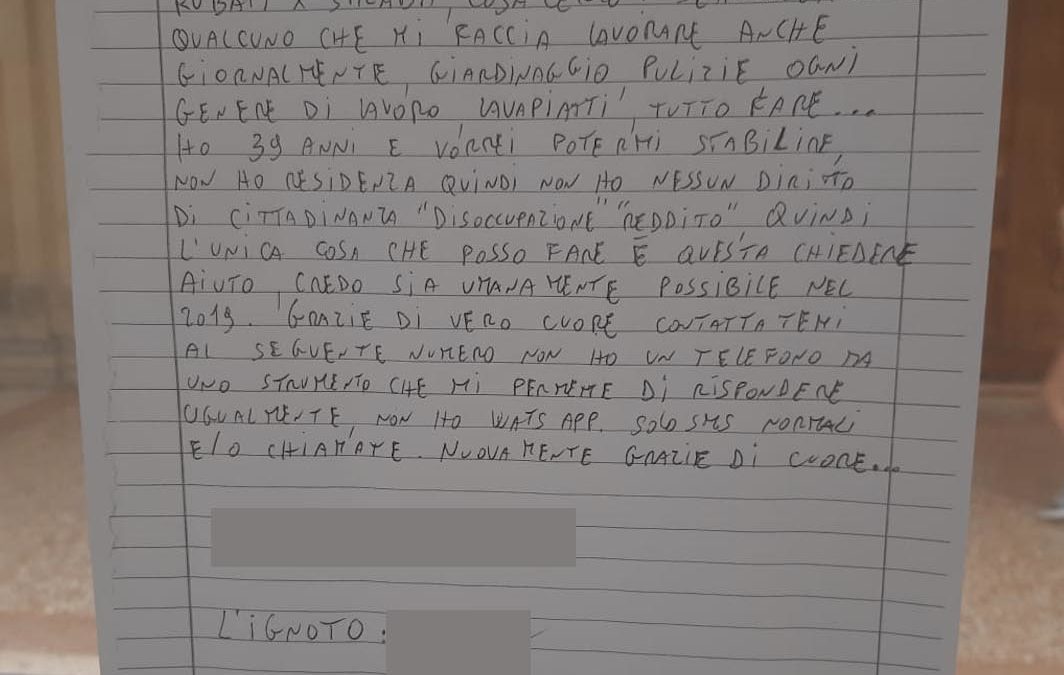 QUALCUNO CHE MI FACCIA LAVORARE ANCHE
GIORNALMENTE, GIARDINAGGIO PULIZIE OGNI
GENERE DI LAVORO LAVAPIATTI, TUTTO FARE...
HO 39 ANNI E VORREI POTERMI STABILIRE,
NON HO RESIDENZA QUINDI NON HO NESSUN DIRITTO
DI CITTADINANZA "DISOCCUPAZIONE" "REDDITO" QUINDI
L'UNICA COSA CHE POSSO FARE È QUESTA CHIEDERE
AIUTO, CREDO SIA UMANAMENTE POSSIBILE NEL
2019. GRAZIE DI VERO CUORE CONTATTATEMI
AL SEGUENTE NUMERO NON HO UN TELEFONO MA
UNO STRUMENTO CHE MI PERMETTE DI RISPONDERE
UGUALMENTE, NON HO WATS APP. SOLO SMS NORMALI
E/O CHIAMATE. NUOVAMENTE GRAZIE DI CUORE...
L'IGNOTO: